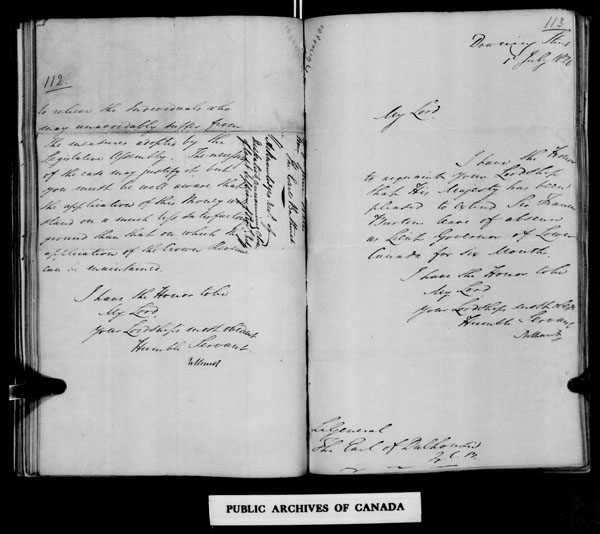 112.
to relieve the Individuals who
may unavoidably suffer from
the measures adopted by the
Legislative Assembly. The necessity
of the case may justify it but
you must be well aware that
the application of this Money will
stand on a much less satisfactory
ground than that on which the
application of the Crown Revenue
can be maintained.
I have the Honor to be
My Lord,
Your Lordships most obedient
Humble Servant
Bathurst
The Earl Bathurst
113
Downing Street
1 July 1826
My Lord
I have the Honor
to acquaint Your Lordship
that His Majesty has been
pleased to extend Sir Francis
Burton leave of absence
as Lieut Governor of Lower
Canada for six Months.
I have the Honor to be
My Lord
Your Lordships most obedt
Humble Servant
Bathurst
Lt General
The Earl of Dalhousie
PUBLIC ARCHIVES OF CANADA